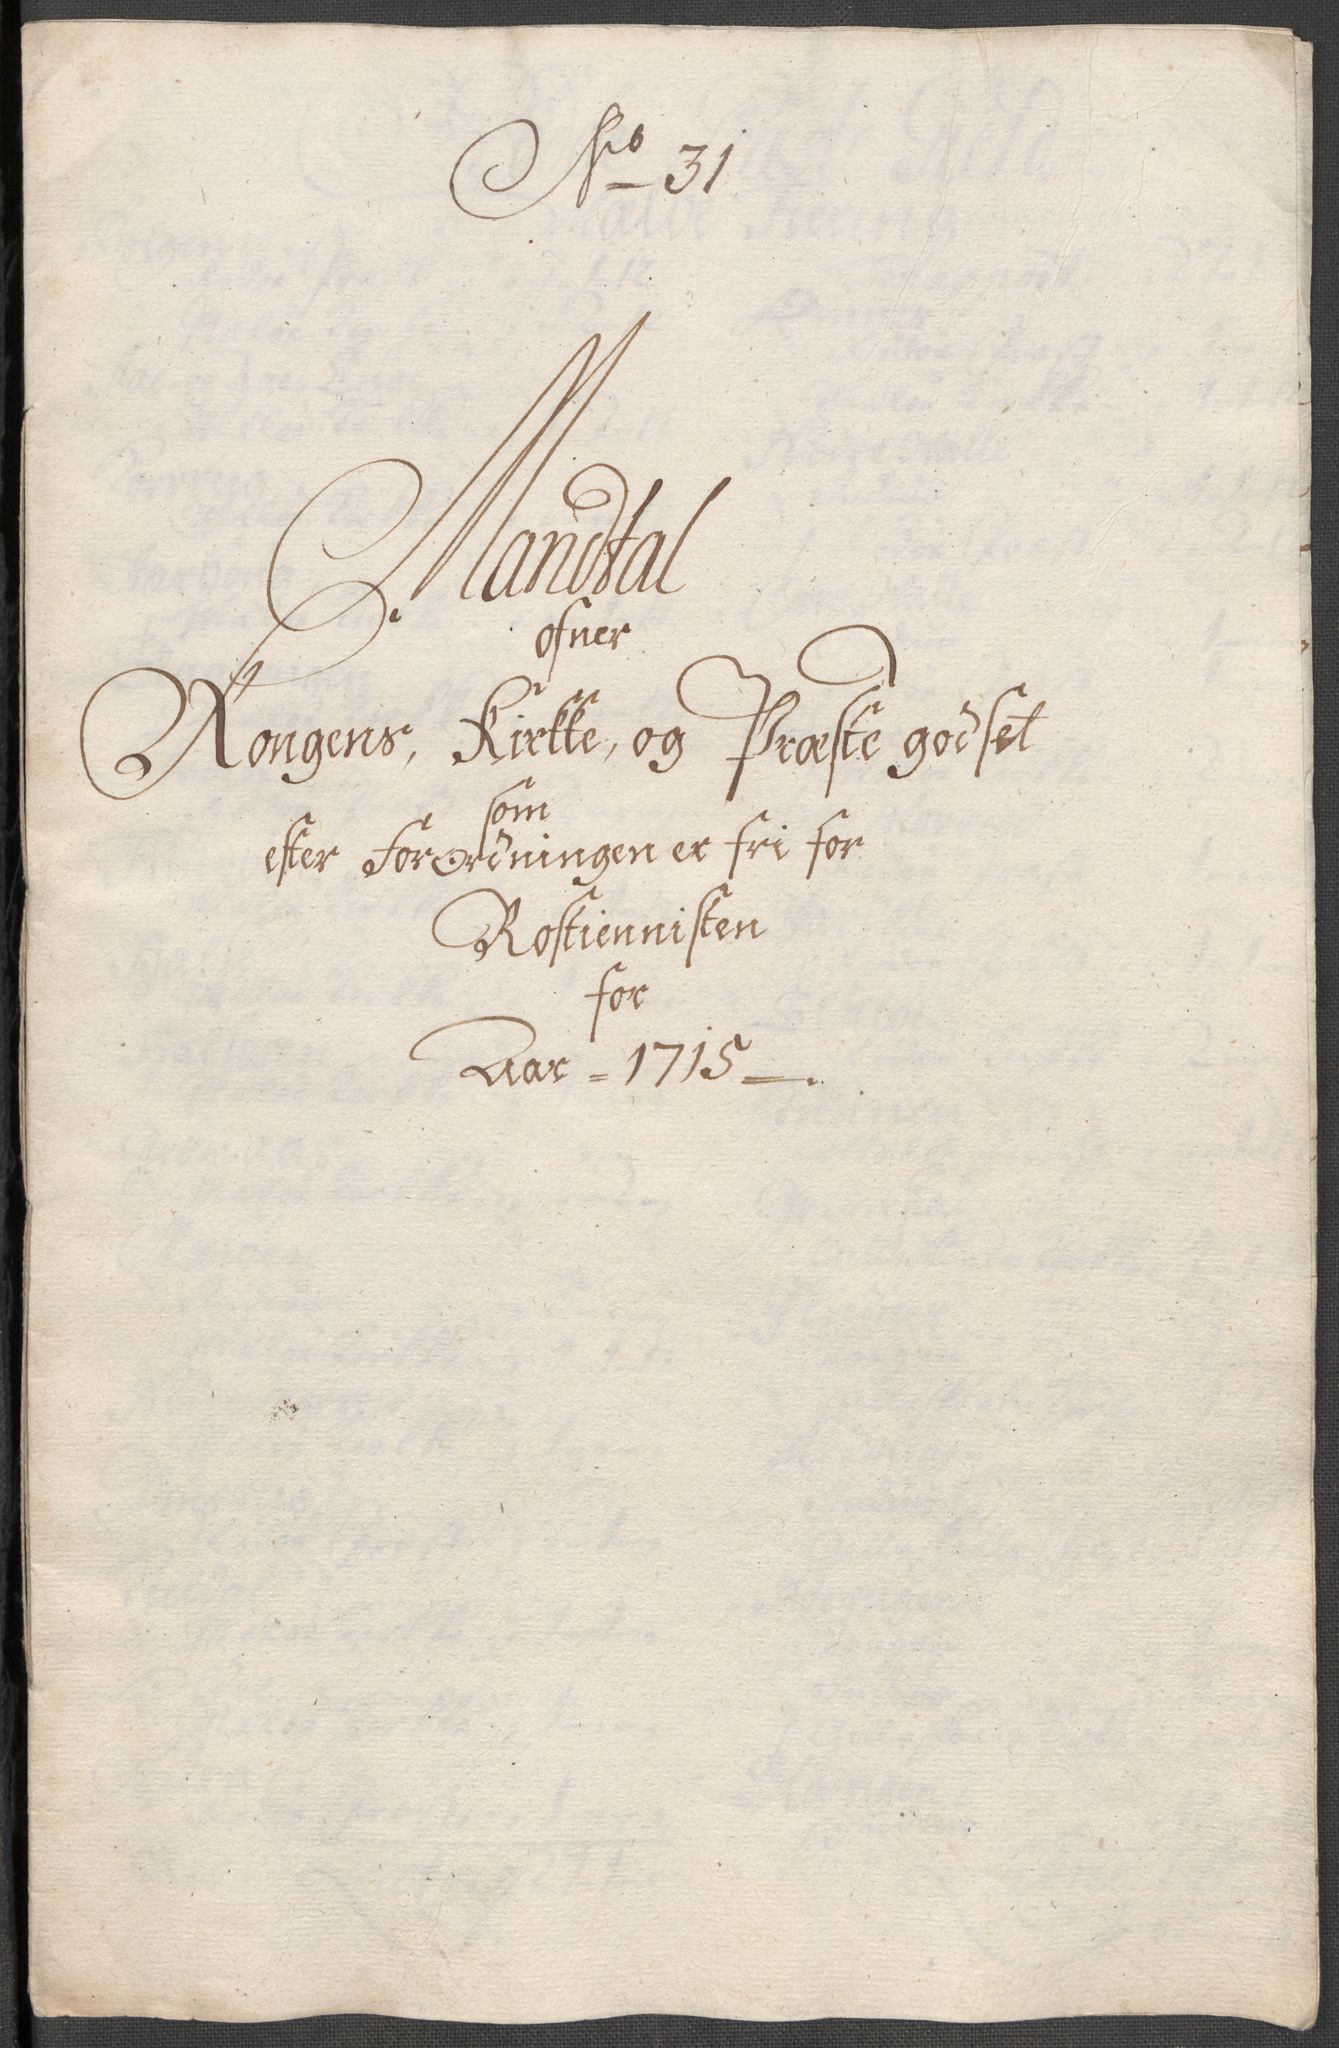 No 31
Mandtal
ofuer
Kongens, Kirkke, og Præste godset
som
efter Forordningen er fri for
Rostiennisten
for
Aar = 1715 —.